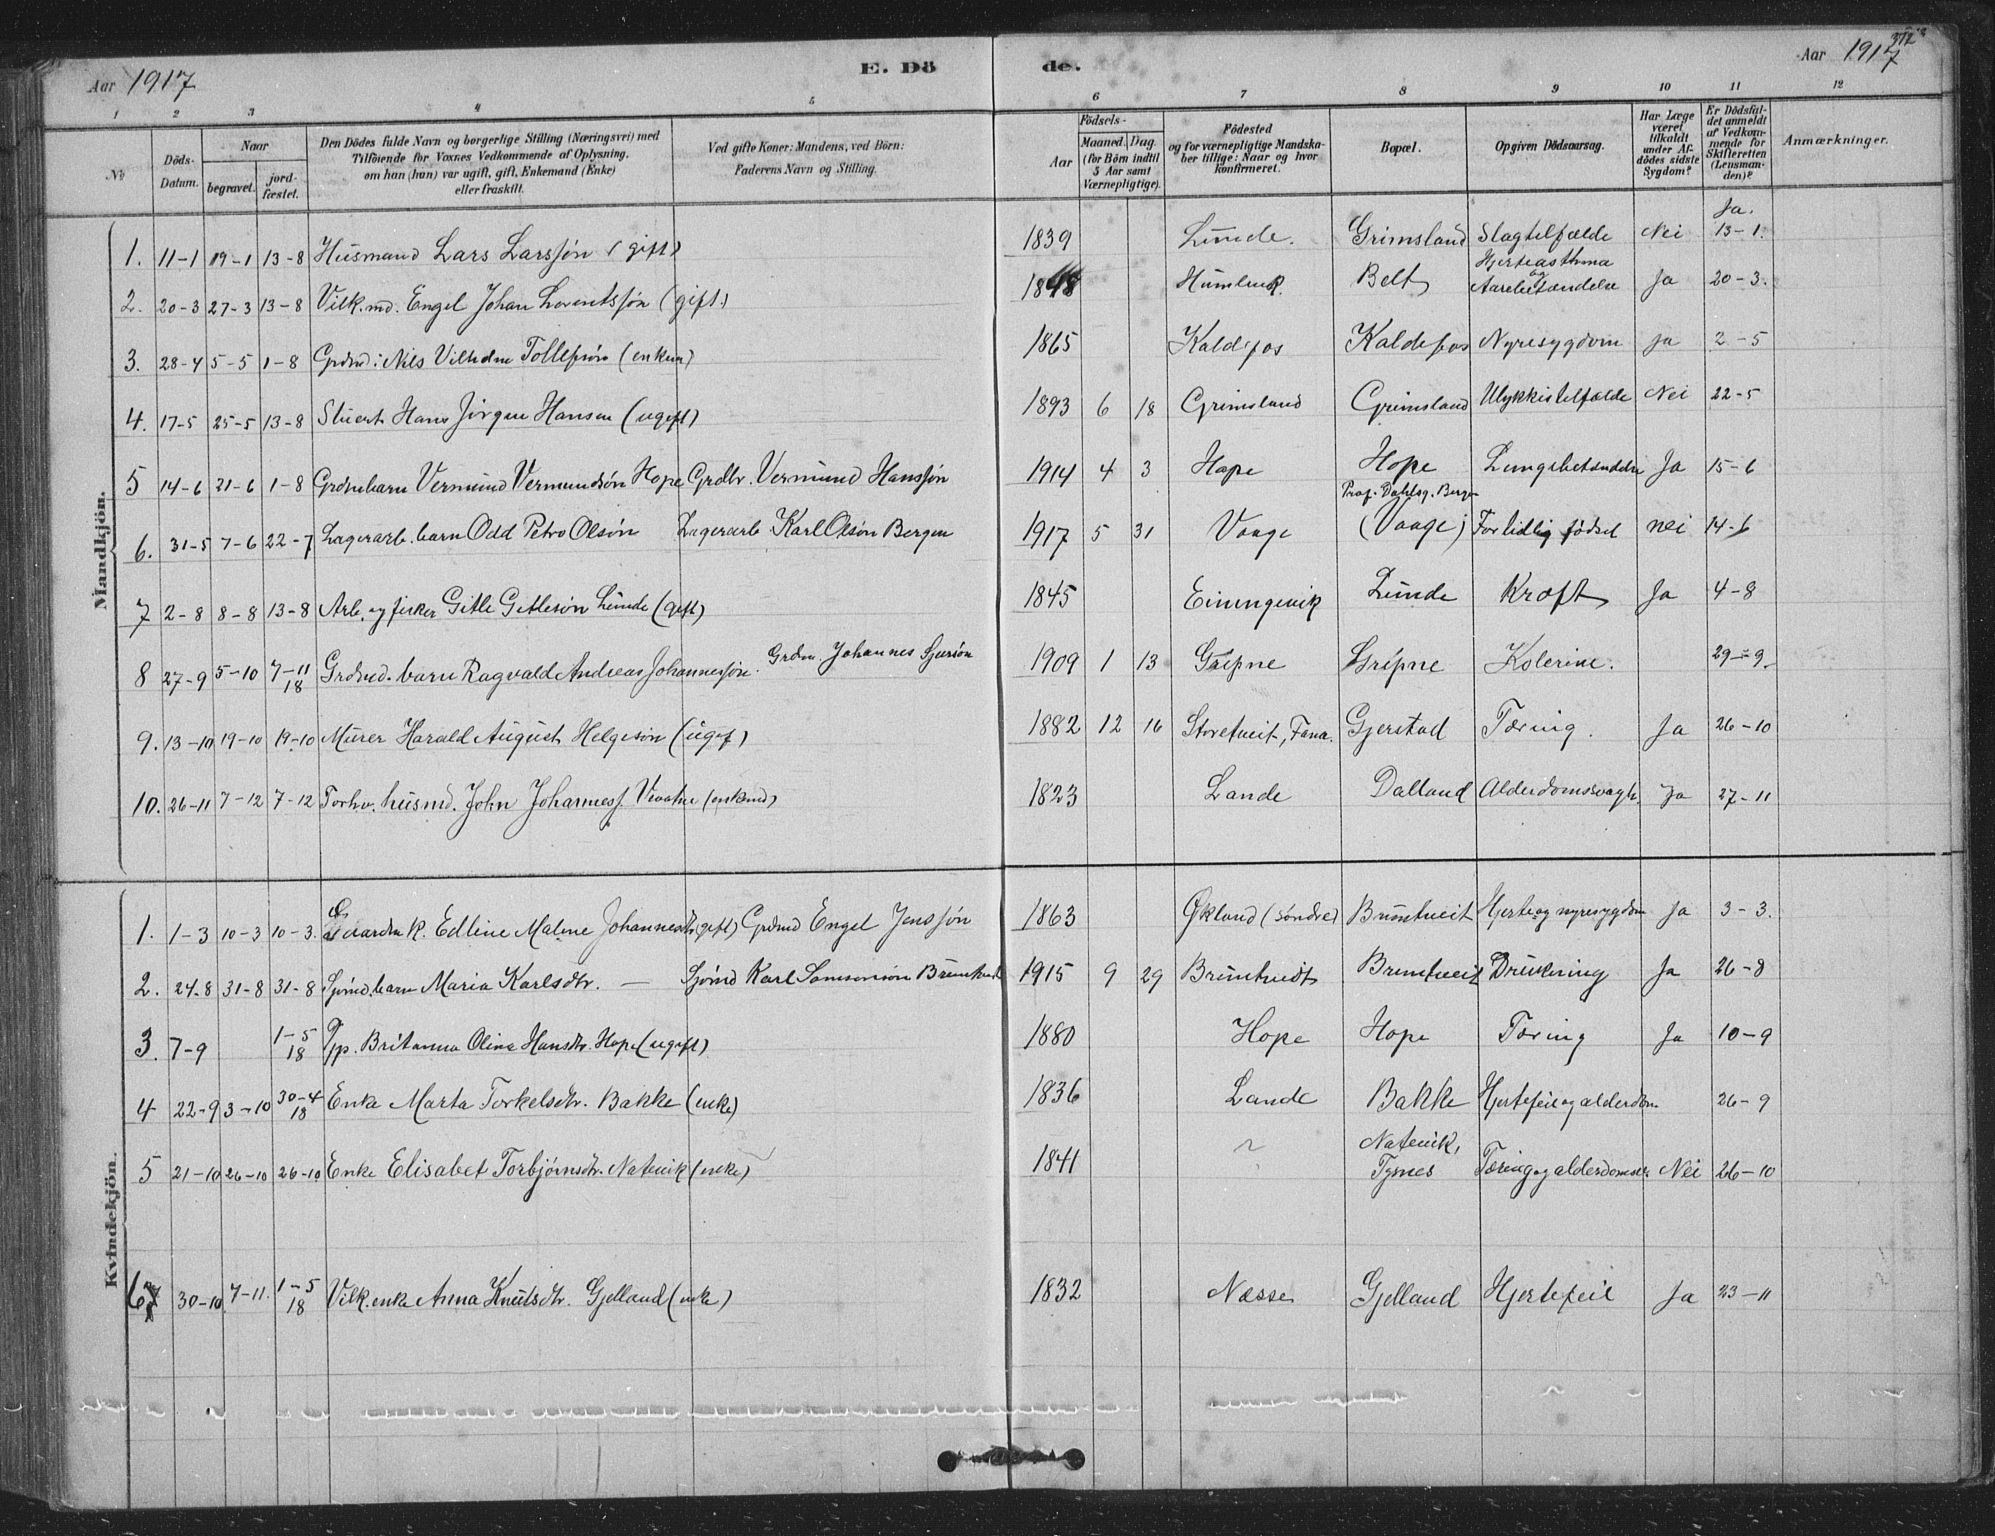 Aar 1917
E. Dö
de.
Aar 1917
372
1 2 3 4 5 6 7 8 9 10 11 12
№
Döds-Datum.
Naar
begravet.
jord-fæstet.
Den Dödes fulde Navn og borgerlige Stilling (Næringsvei) med
Tilföiende for Voxnes Vedkommende af Oplysning.
om han (hun) var ugift, gift, Enkemand (Enke)
eller fraskilt.
Ved gifte Koner: Mandens, ved Börn:
Faderens Navn og Stilling.
Födsels-
Aar
Maaned. Dag.
(for Börn indtil
5 Aar samt
Værnepligtige).
Födested
og for værnepligtige Mandska-
ber tillige: Naar og hvor
konfirmeret.
Bopæl.
Opgiven Dödsaarsag.
Har Læge
været
tilkaldt
under Af-
dödes sidste
Sygdom?
Er Dödsfal-
det anmeldt
af Vedkom-
mende for
Skifteretten
(Lensman-
den)?
Anmærkninger.
Mandkjön.
1. 11-1 19-1 13-8 Husmand Lars Larssøn (gift) 1839 Lunde. Grimsland Slagtilfælde Nei Ja. 13-1.
2. 20-3 27-3 13-8 Vilk.md. Engel Johan Lorentssøn (gift) 1848 Belt Hjerteasthma og Aarebetændelse Ja 20-3.
3. 28-4 5-5 1-8 Grdmd. Nils Vilhelm Tollefsøn (enkem) 1865 Kaldefos Kaldefos Nyresygdom Ja 2-5
4. 17-5 25-5 13-8 Stuert Hans Jörgen Hansen (ugift) 1893 6 18 Grimsland Grimsland Ulykkestilfælde Nei 22-5
5 14-6 21-6 1-8 Grdmebarn Vermund Vermundsön Hope Grdbr. Vermund Hanssjön 1914 4 3 Hope Hope Lungebetændelse Ja 15-6
6. 31-5 7-6 22-7 Lagerarb. barn Odd Petro Olsön Lagerarb Karl Olsön Bergen 1917 5 31 Vaage Prof. Dahlsg. Bergen (Vaage) For tidlig fødsel nei 14-6
7 2-8 8-8 13-8 Arb. og fisker Gitle Gitlesön Lunde (gift) 1845 Einingevik Lunde Kræft Ja 4-8
8 27-9 5-10 7-11 18 Grdmd. barn Ragvald Andreas Johannessön. Grdm. Johannes Sjursön 1909 1 13 Gripne Gripne Kolerine. 29-9.
9. 13-10 19-10 19-10 Murer Harald August Helgesön (ugift) 1882 12 16 Storetveit, Fana. Gjerstad Tæring. Ja 26-10
10. 26-11 7-12 7-12 Forhv. husmd. John Johanness. (enkmd) 1823 Lande Dalland Alderdomssvagh. Ja 27-11
Kvindekjön.
1. 1-3 10-3 10-3. Gaardm.k. Edline Maline Johannesdtr (gift) Grdmd Engel Jenssjön 1863 Økland (söndre) Bruntveit Hjerte og nyresygdom Ja 3-3.
2. 24-8 31-8 31-8 Sjömd. barn Maria Karlsdtr. — Sjömd Karl Samsonsön Bruntveit 1915 9 29 Bruntveit Bruntveit Drukning Ja 26-8
3. 7-9 1-5 18 Pp. Britanna Olina Hansdtr. Hope (ugift) 1880 Hope Hope Tæring Ja 10-9
4 22-9 3-10 30-4 18 Enke Marta Torkelsdtr. Bakke (enke) 1836 Lande Bakke Hjertefeil og alderdom. 26-9
5 21-10 26-10 26-10 Enke Elisabet Torbjørnsdtr. Natvik (enke) 1841 ? Natevik, Tysnes Tæring og alderdomssv. Nei 26-10
6 30-10 7-11. 1-5 18 Vilk. enke Anna Knutsdtr. Gjelland (enke) 1832 Næsse Gjelland Hjertefeil Ja 23-11